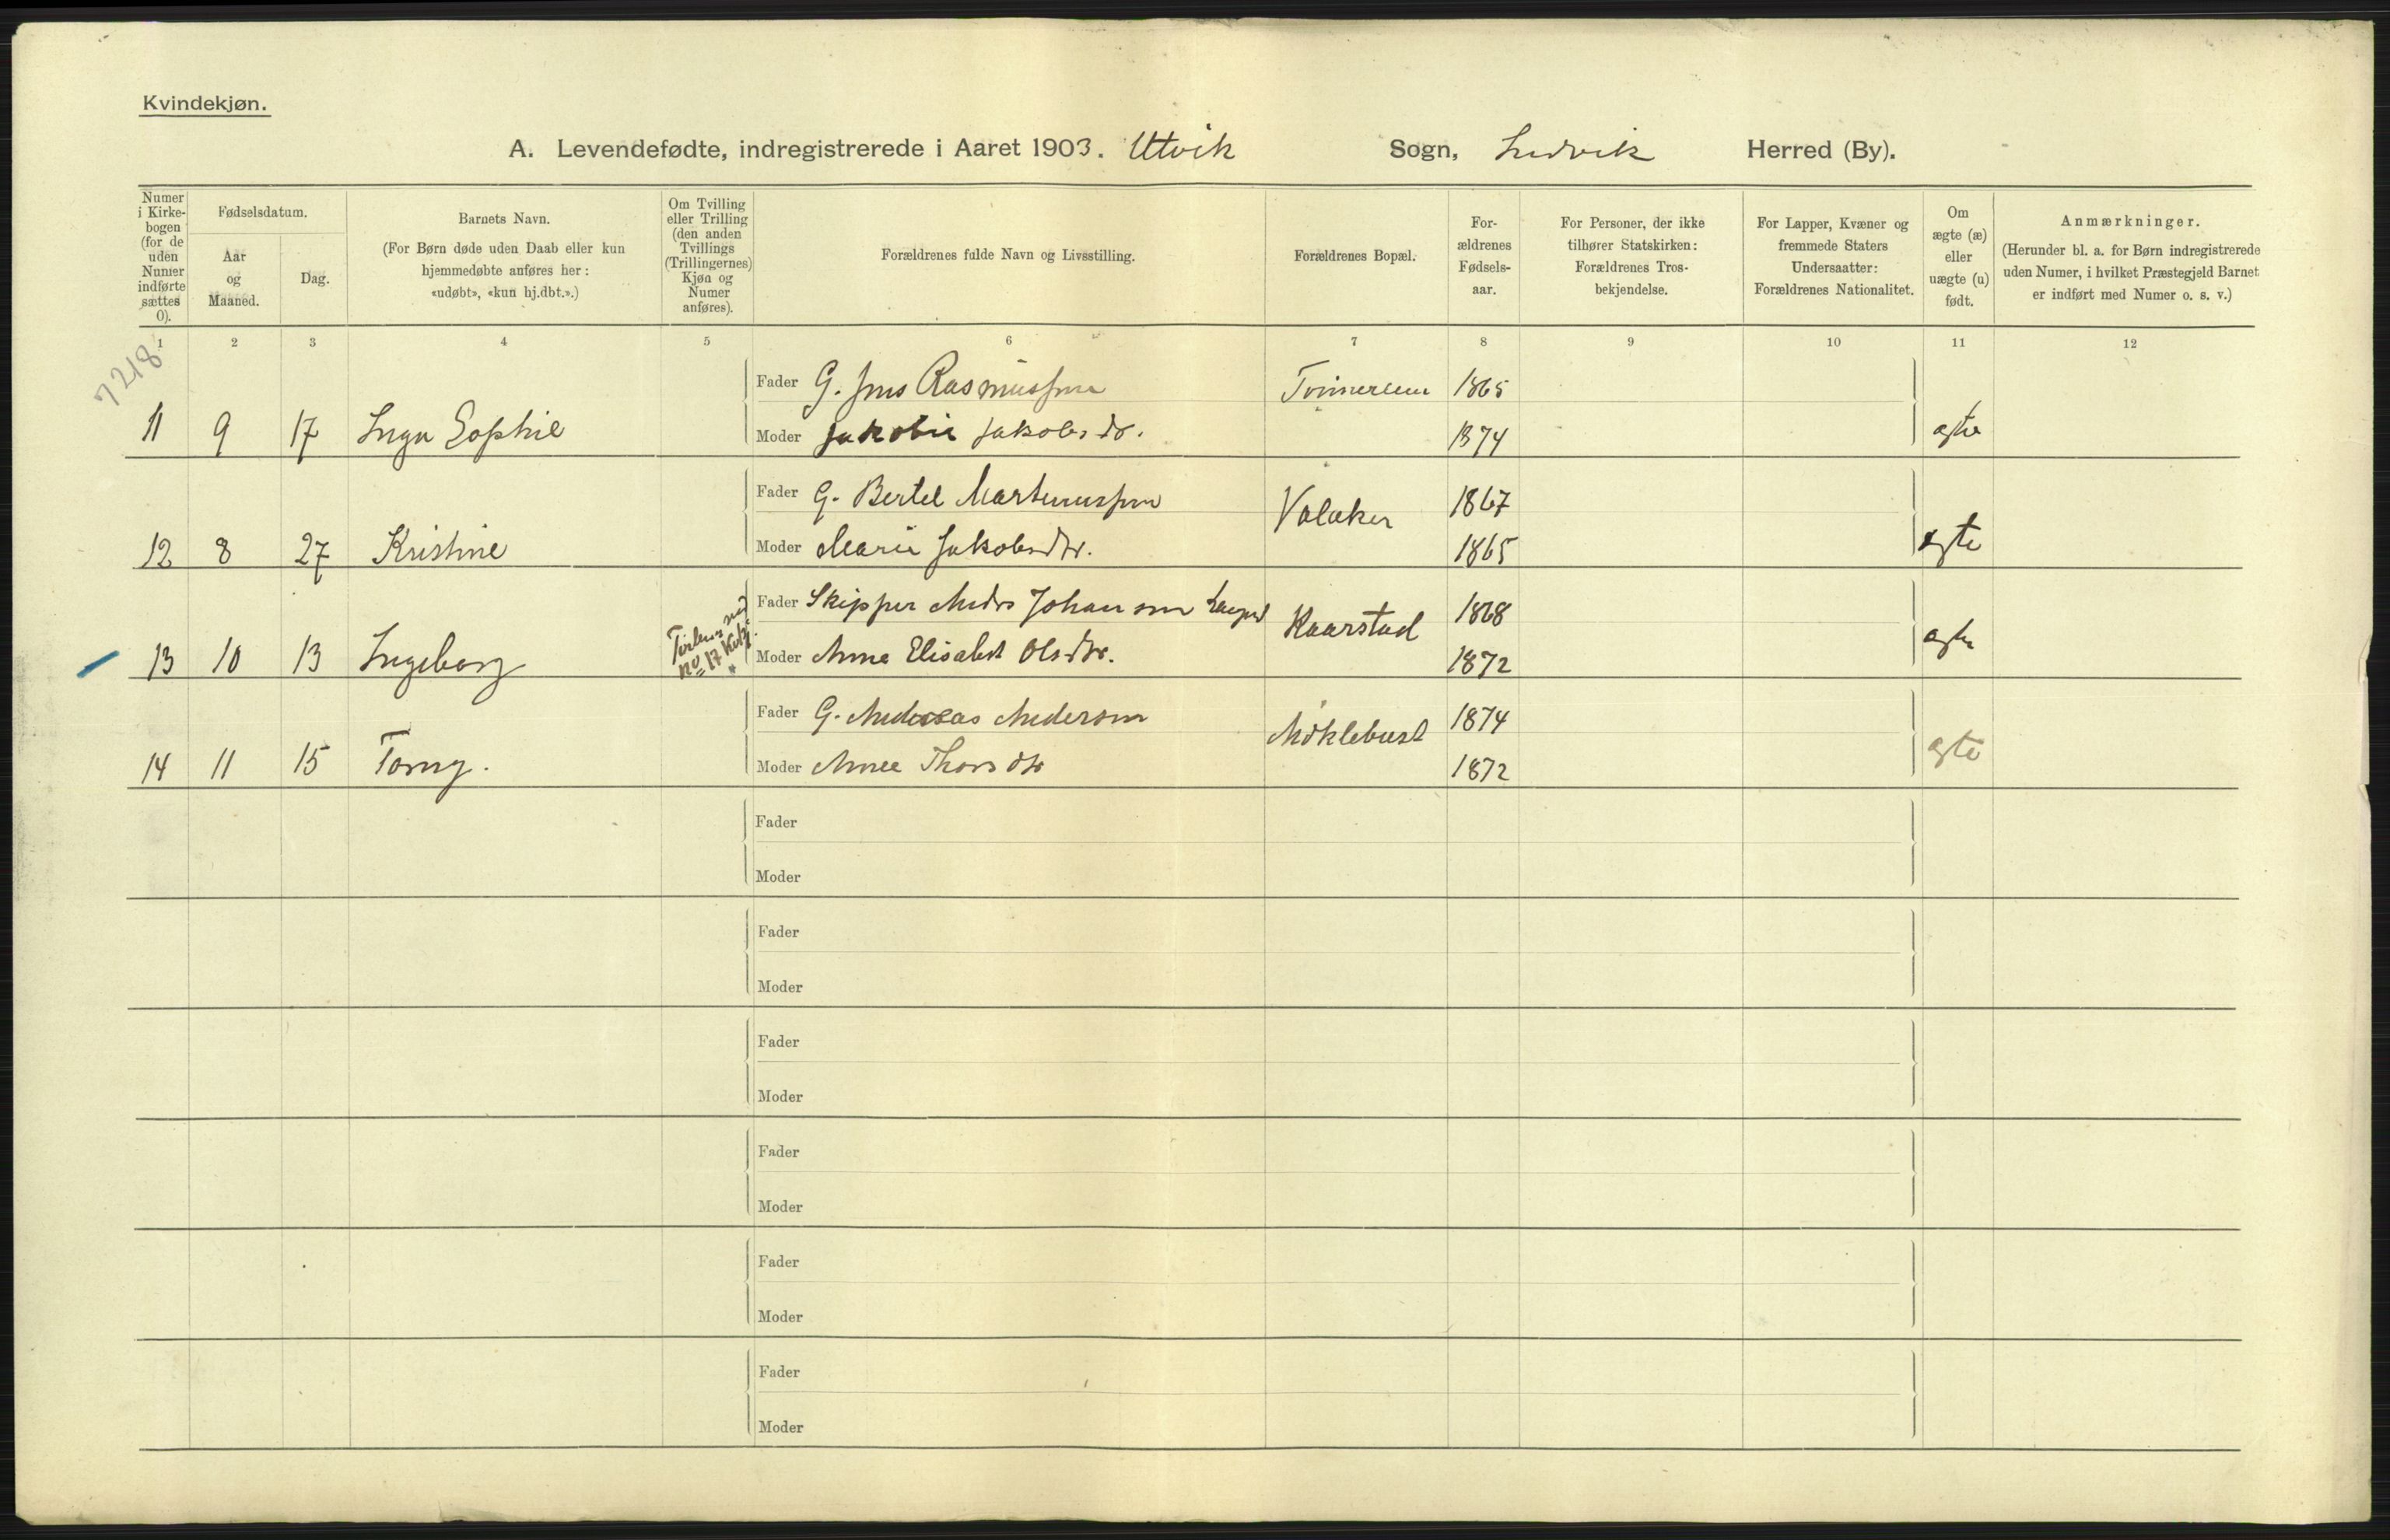 Kvindekjøn.
A. Levendefødte, indregistrerede i Aaret 1903. Utvik Sogn, Indvik Herred (By).
Numer i Kirkebogen (for de uden Numer indførte sættes 0).
Fødselsdatum.
Aar og Maaned.
Dag.
Barnets Navn.
(For Børn døde uden Daab eller kun hjemmedøbte anføres her: «udøbt», «kun hj.dbt.».)
Om Tvilling eller Trilling (den anden Tvillings (Trillingernes) Kjøn og Numer anføres).
Forældrenes fulde Navn og Livsstilling.
Forældrenes Bopæl.
Forældrenes Fødselsaar.
For Personer, der ikke tilhører Statskirken: Forældrenes Trosbekjendelse.
For Lapper, Kvæner og fremmede Staters Undersaatter: Forældrenes Nationalitet.
Om ægte (æ) eller uægte (u) født.
Anmærkninger.
(Herunder bl. a. for Børn indregistrerede uden Numer, i hvilket Præstegjeld Barnet er indført med Numer o. s. v.)
1 2 3 4 5 6 7 8 9 10 11 12
7218
Fader G. Jens Rasmussen 1865
11 9 17 Inga Sophie Moder Jakobie Jakobsdtr. 1874 ægte
Fader G. Bertel Martinussen Valaker 1867
12 8 27 Kristine Moder Marie Jakobsdtr. 1865 ægte
Fader Skipper Anders Johanson Kaarstad 1868
13 10 13 Ingeborg No 17 Moder Anna Elisabet Olsdtr. 1872 ægte
Fader G. Andreas Anderson Møklebust 1874
14 11 15 Torny. Moder Anne Thorsdtr 1872 ægte
Fader
Moder
Fader
Moder
Fader
Moder
Fader
Moder
Fader
Moder
Fader
Moder